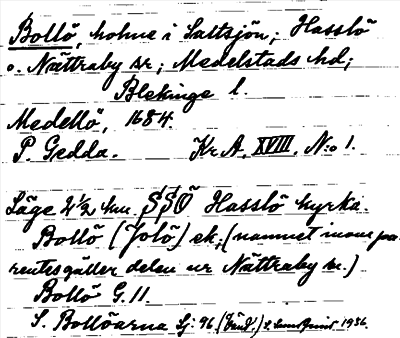 Bollö, holme i Saltsjön; Hasslö
o. Nättraby sr; Medelstads hd;
Blekinge l.
Medellö, 1684.
P. Gedda. Kr A. XVIII. N:o 1.
Läge 2½ km. SSO Hasslö kyrka.
Bollö (Jolö) ek; (namnet inom pa-
rentes gäller delen ur Nättraby sn.)
Bollö G. 11.
S. Bollöarna Sj: 96
1936.